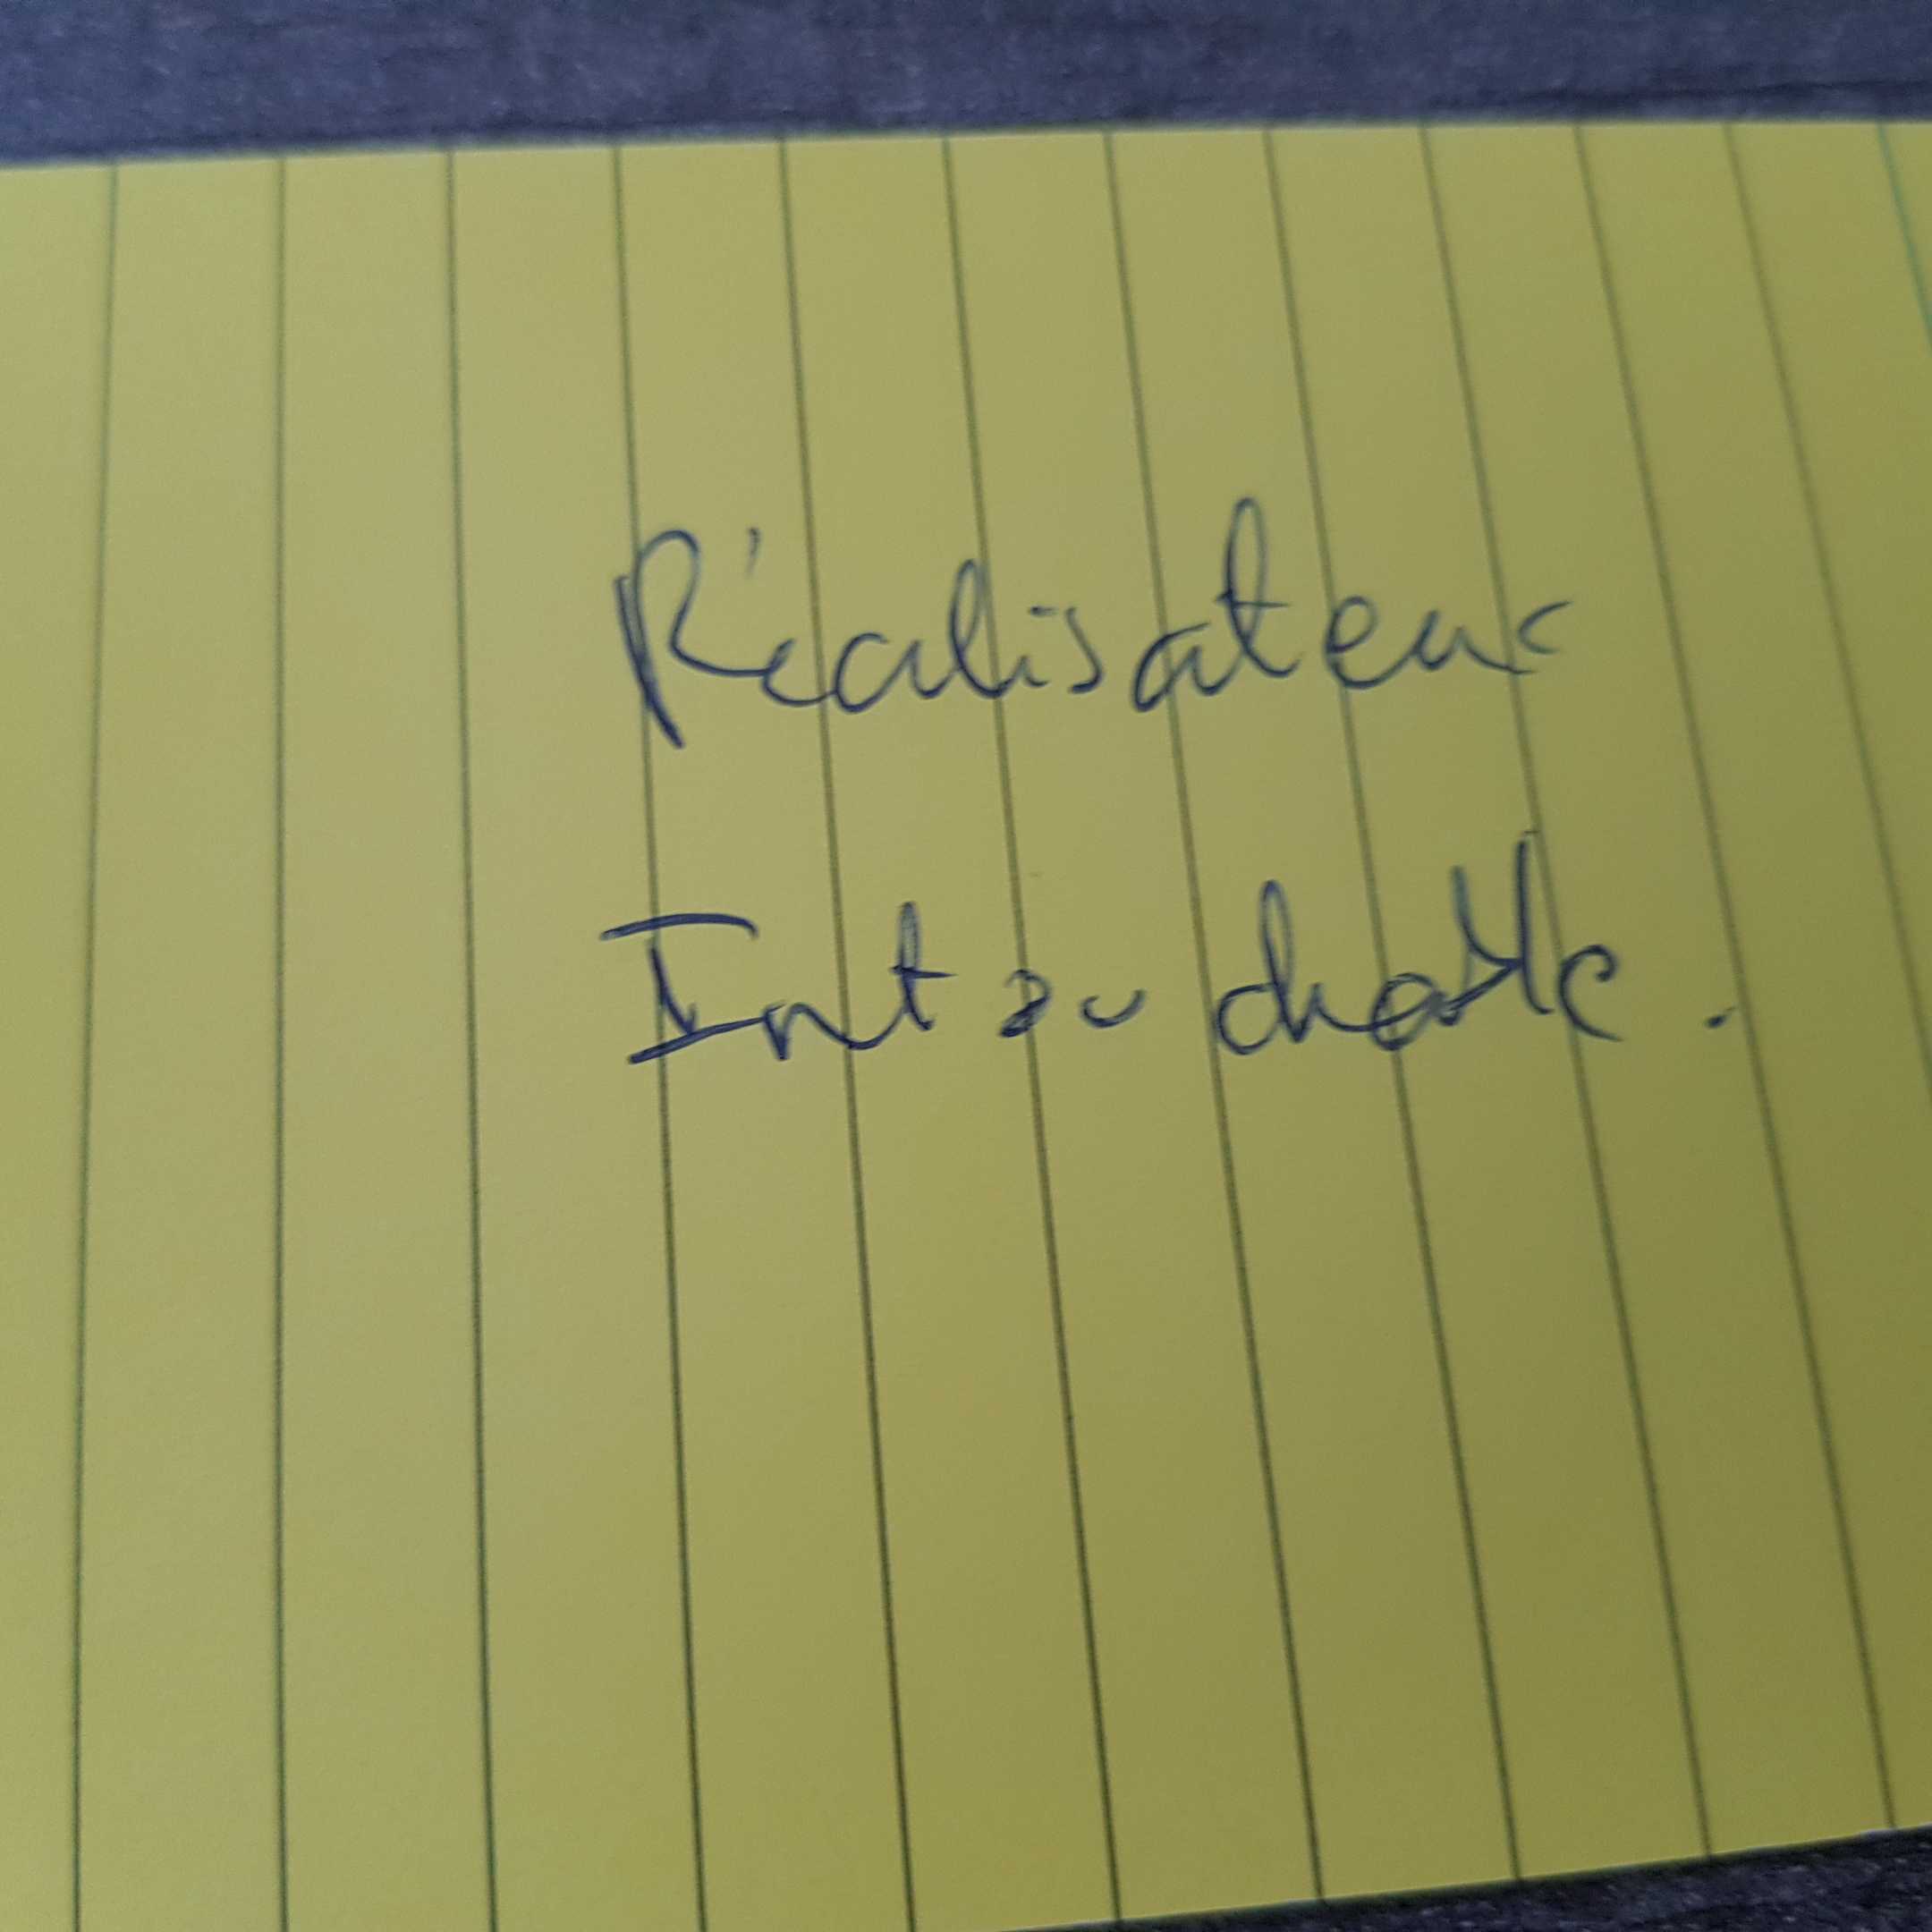 Réalisateur
Intouchable.